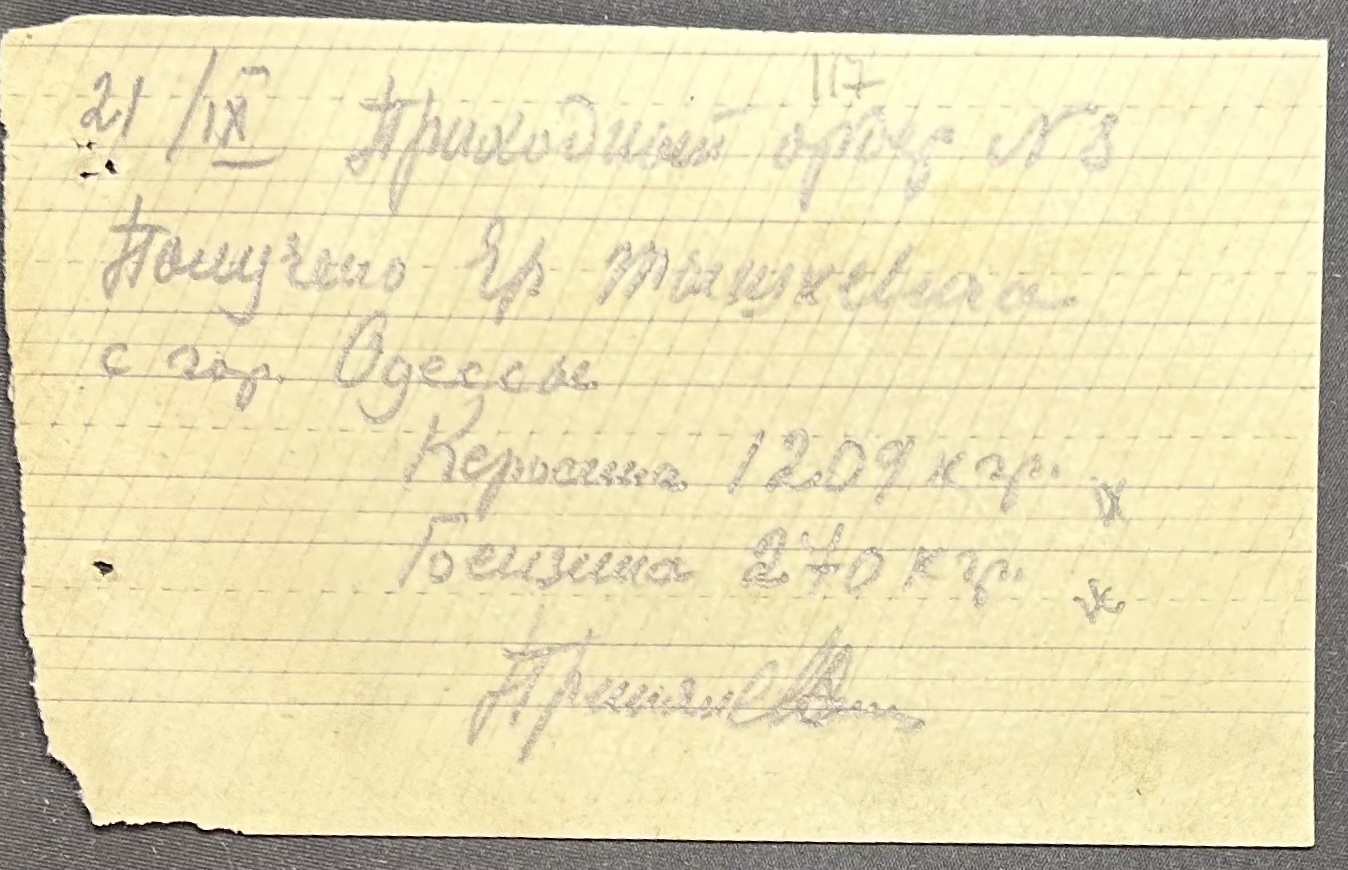 117
21/IX Приходный ордер N 8
Получено Гр Тышкевича
с гор. Одессы
Керосина 1209 кгр.
Бензина 270 кгр.
Принял